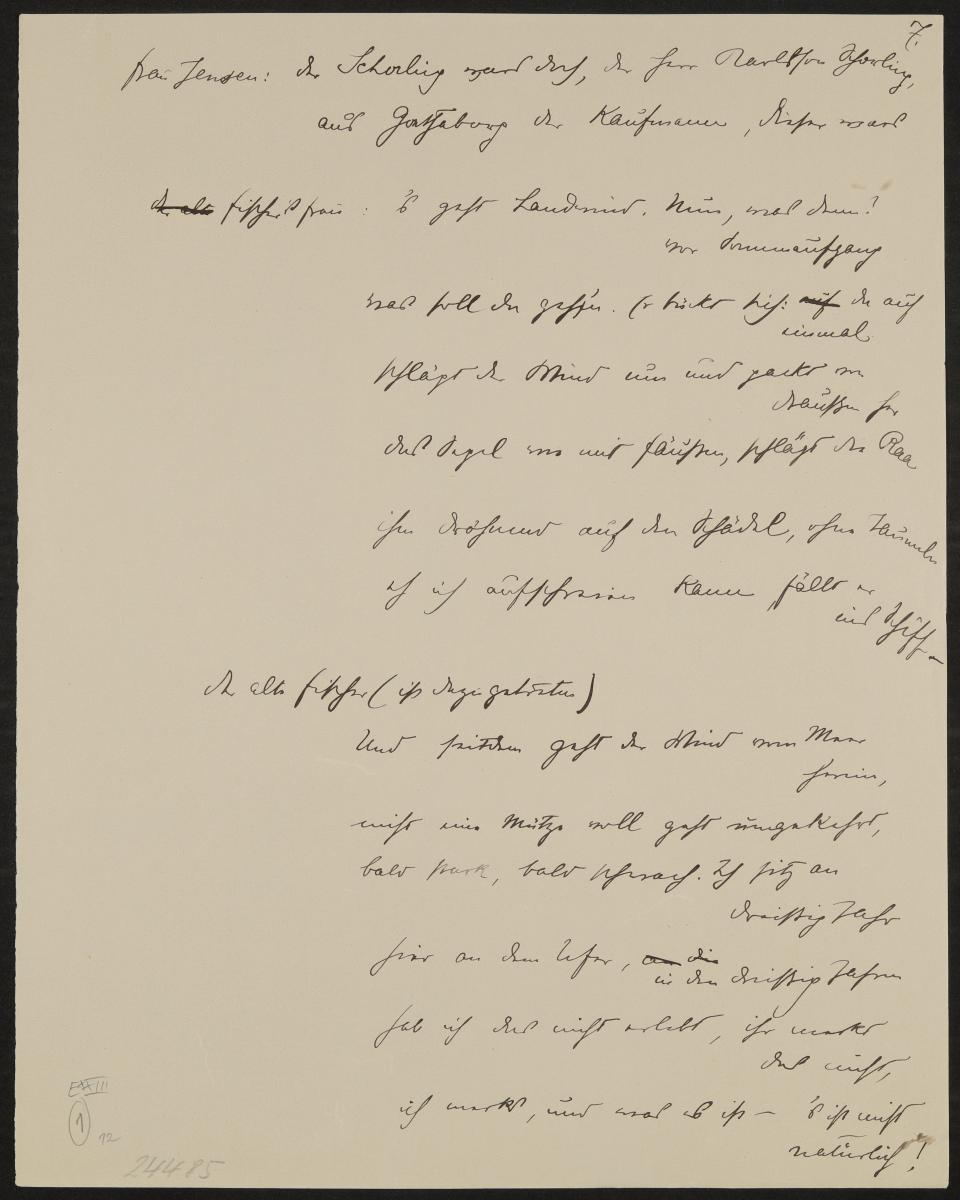 7.
frau Jensen: der Schorling ward doch, der Herr Karlsson Schorling,
aus Gothaborg der Kaufmann, dieser ward
der alte fischer's frau: 's geht Landwind. Nun, was dann?
vor Sonnenaufgang
was soll da gehen. Er bückt sich: auf da auf
einmal
schlägt der Wind um und packt von
draußen her
das Segel wie mit fäusten, schlägt die Raa
ihm dröhnend auf den Schädel, ohne Taumeln
eh ich aufschreien kann fällt er
ins Schiff –
der alte fischer (ist dazugetreten)
Und seitdem geht der Wind vom Meer
herein,
nicht eine Mütze voll geht umgekehrt,
bald stark, bald schwach. Ich sitz an
dreissig Jahr
hier an dem Ufer, an die
in den dreissig Jahren
hab ich das nicht erlebt, ihr merkt
das nicht,
ich merks, und was es ist – 's ist nicht
natürlich!
EXIII
1
12
24485